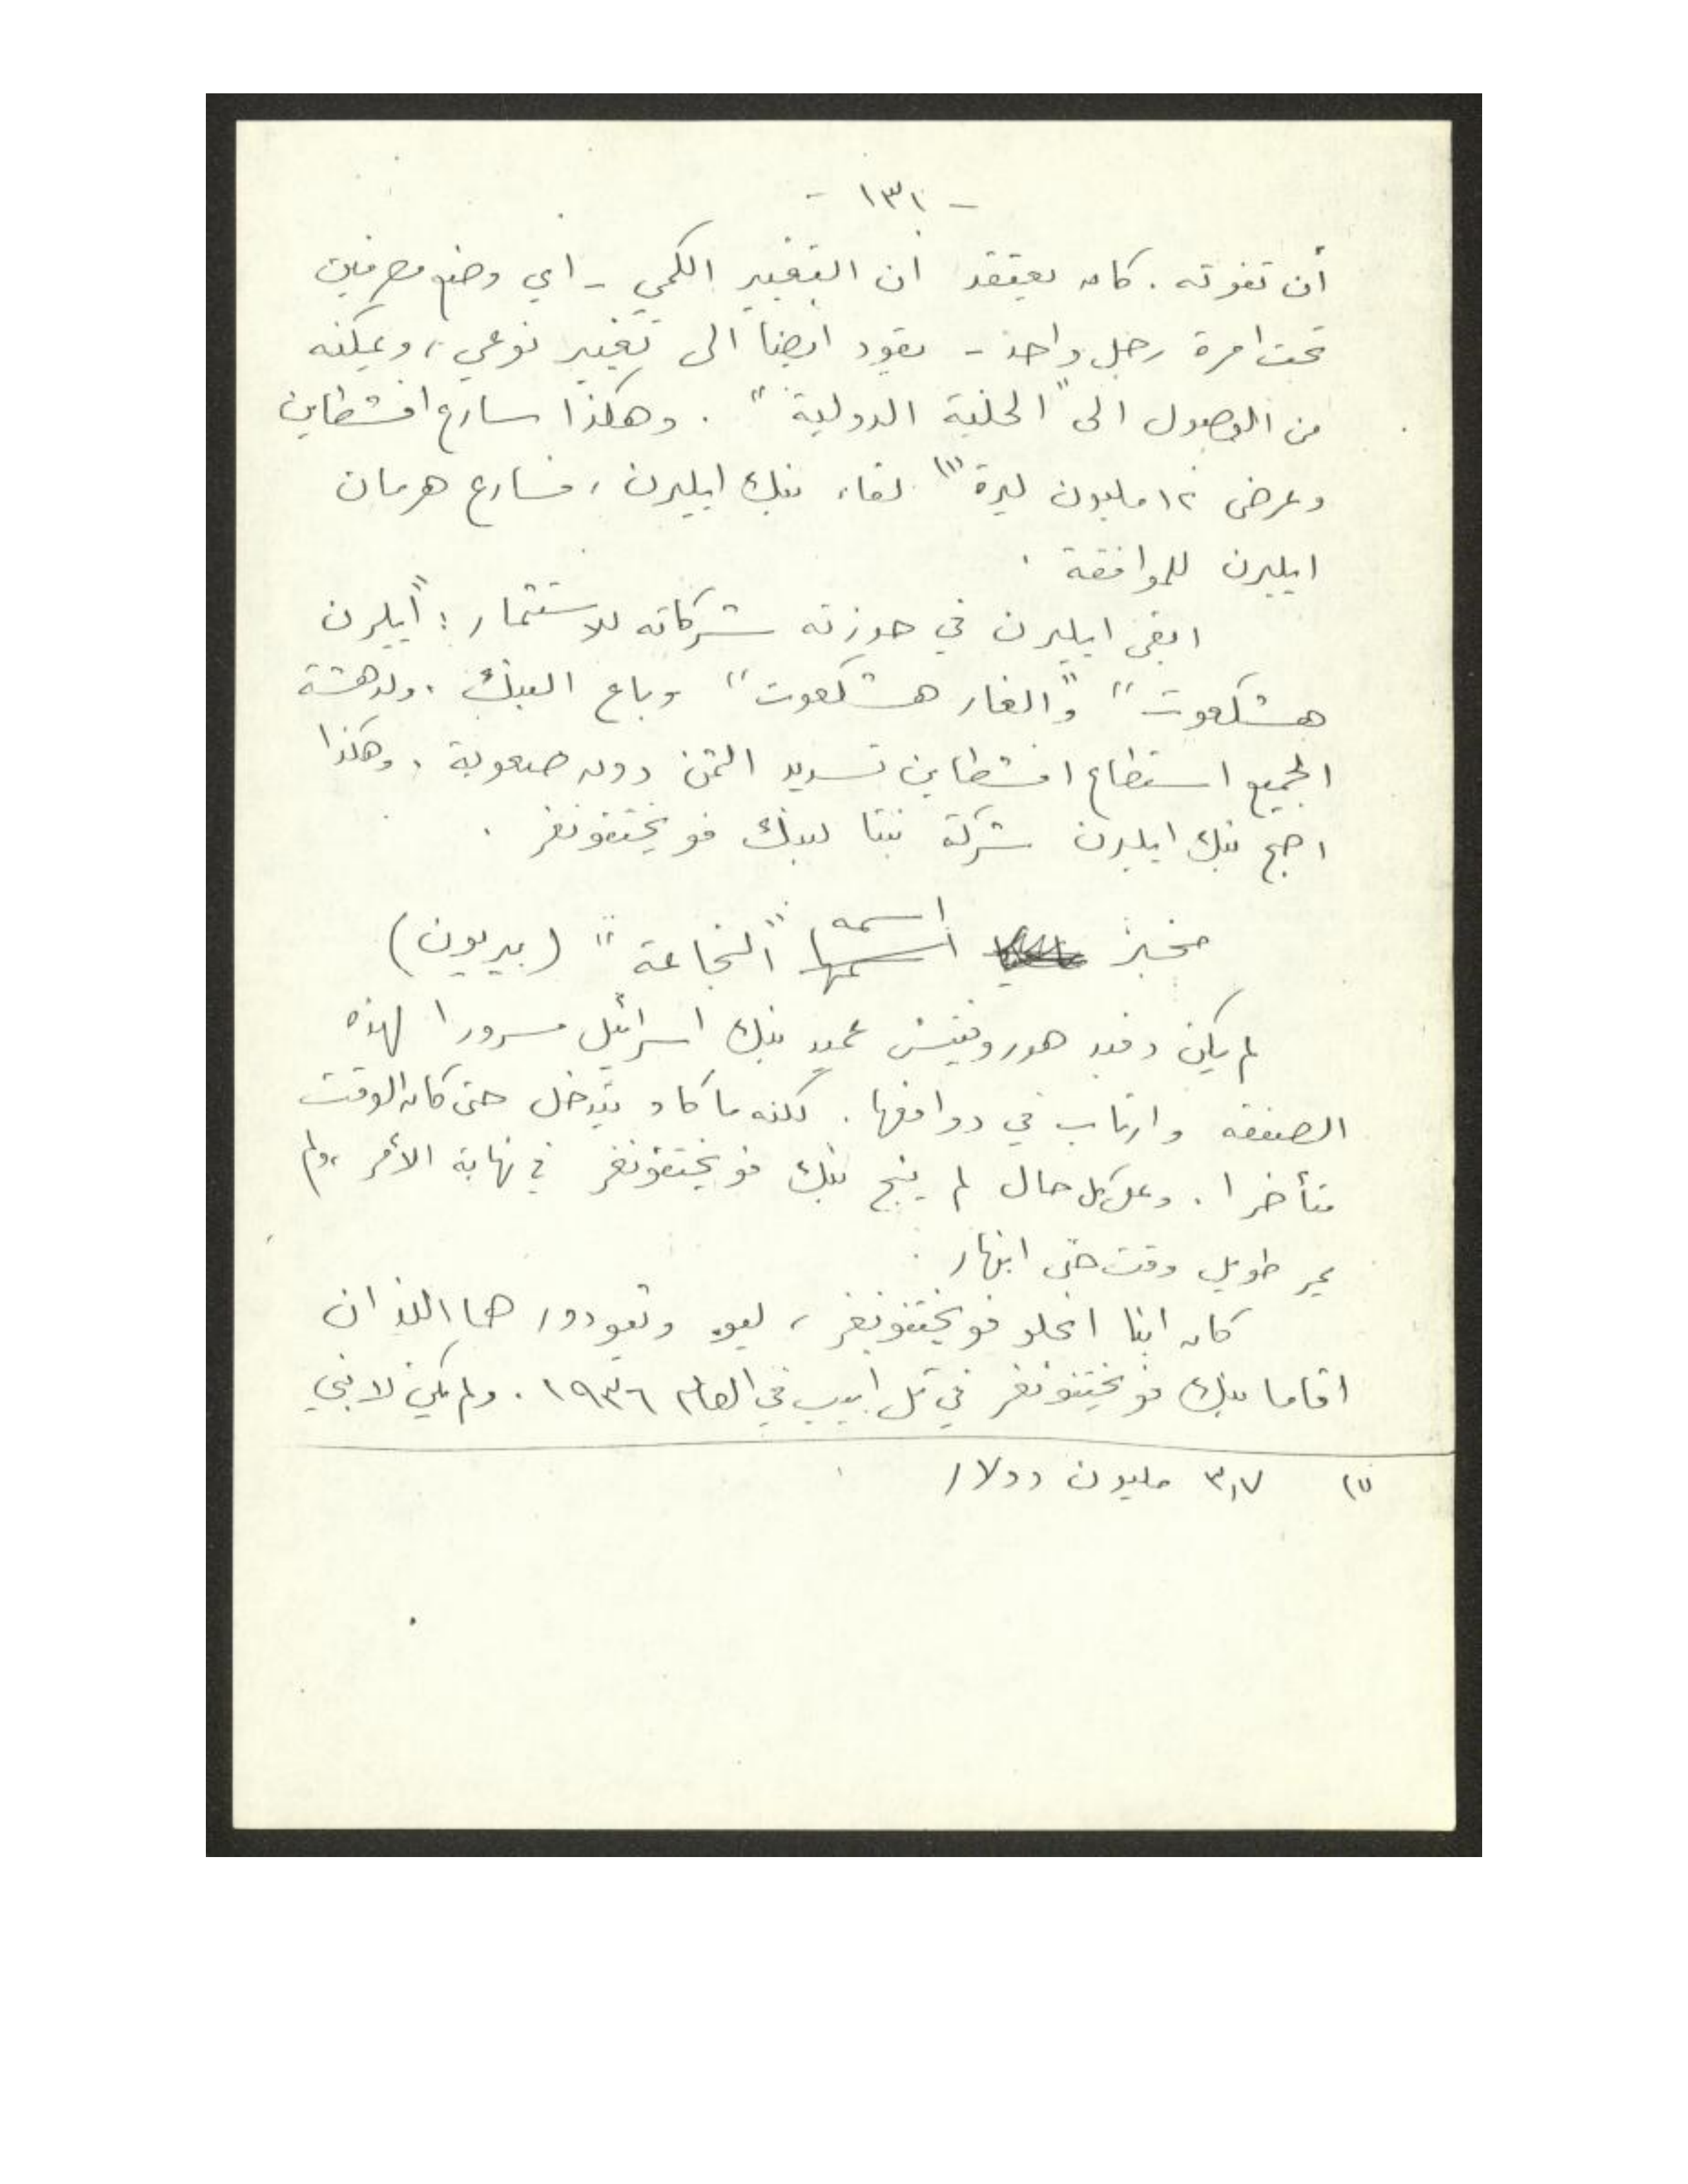 - ١٣١ -
أن تفوته . كان يعتقد ان التغيير الكمي - اي وضع مصرفين
تحت امرة رجل واحد - يقود ايضا الى تغيير نوعي ، ويمكنه
من الوصول الى "الحلبة الدولية" . وهكذا سارع افشطاين
وعرض ١٢ مليون ليرة (١) لقاء بنك ايليرن ، فسارع هرمان
ايليرن للموافقة .
ابقى ايليرن في حوزته شركاته للاستثمار : "أيلرن
هشكعوت" و"الغار هشكعوت" وباع البنك . ولدهشة
الجميع استطاع افشطاين تسديد الثمن دون صعوبة . وهكذا
اصبح بنك ايلرن شركة بنتا لبنك فويختفونغر .
مخبز اسمه "النجاعة" (بيريون)
لم يكن دفيد هوروفيتس عميد بنك اسرائيل مسرورا لهذه
الصفقة وارتاب في دوافعها . لكنه ما كاد يتدخل حتى كان الوقت
متأخرا . وعلى كل حال لم ينج بنك فويختفونغر في نهاية الأمر ، ولم
يمر طويل وقت حتى انهار .
كان ابنا انجلو فويختفونغر ، ليو وتيودور هما اللذان
اقاما بنك فويختفونغر في تل ابيب في العام ١٩٣٦ . ولم يكن لابني
(١) ٣,٧ مليون دولار